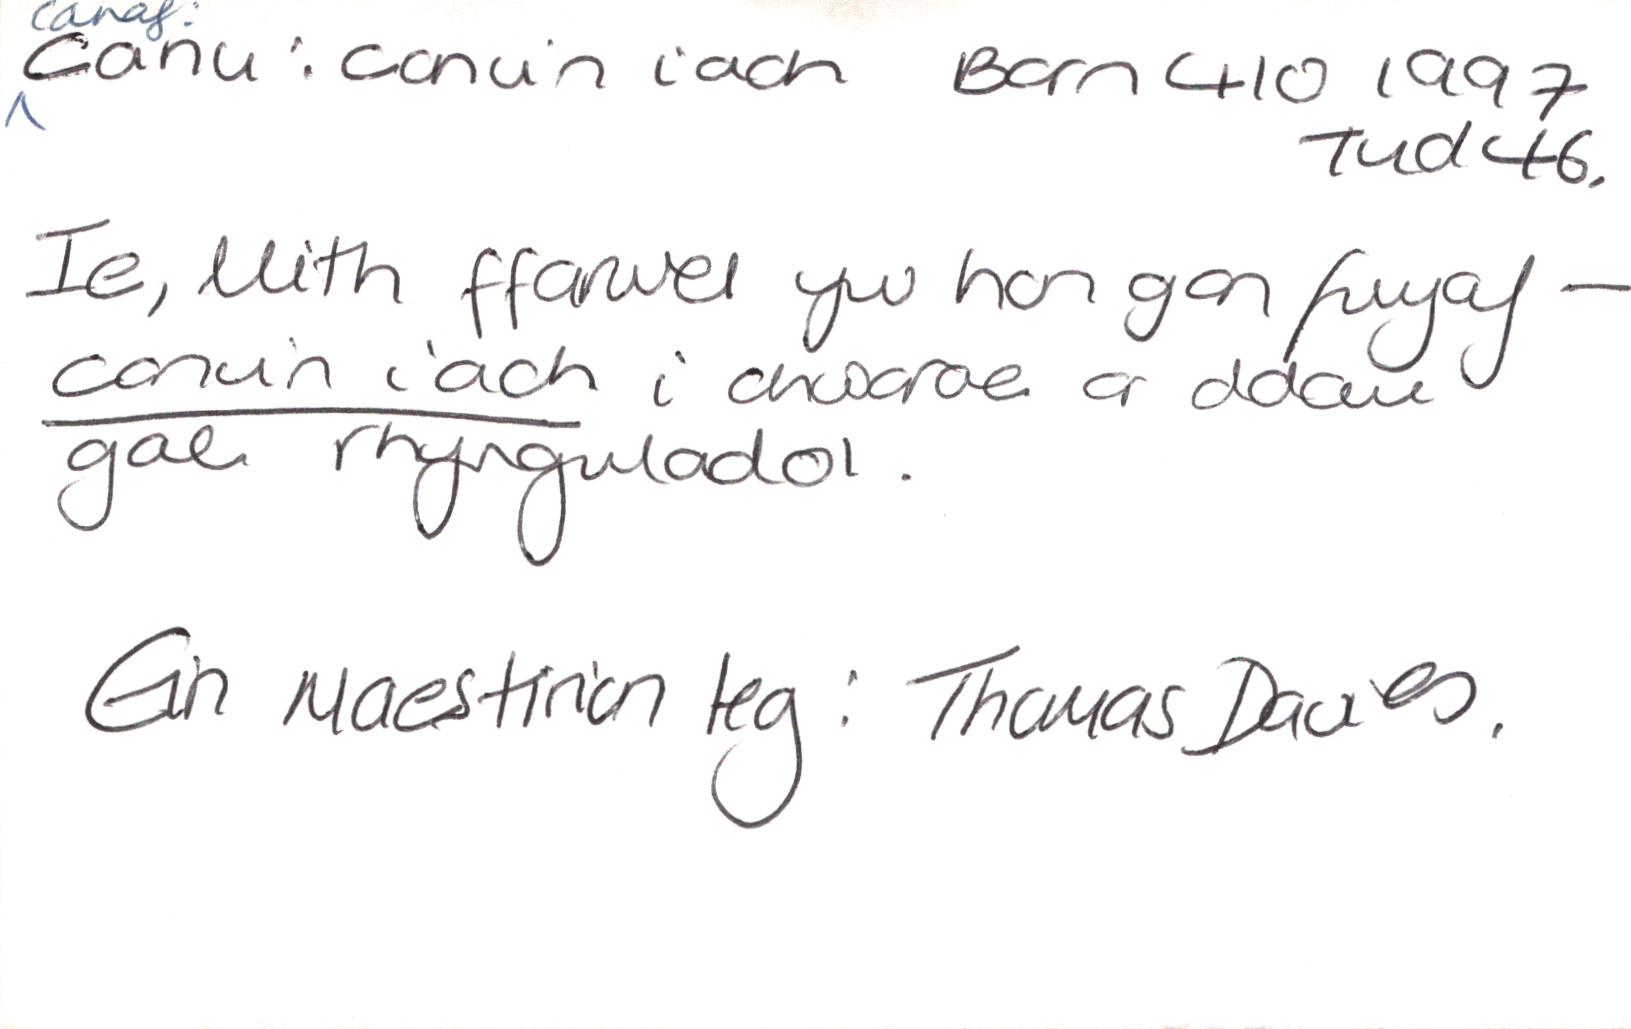 canaf:
Canu: canu'n iach Barn 410 1997
Tud 46.
Ie, llith ffarwel yw hon gan fwyaf —
canu'n iach i chwarae ar ddau
gae rhyngwladol.
Ein Maestirion teg: Thomas Davies.